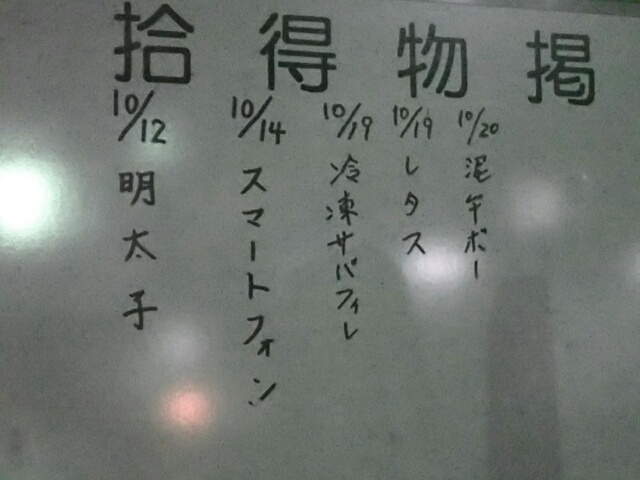 拾得物掲
10/12 明太子
10/14 スマートフォン
10/19 冷凍サバフィレ
10/19 レタス
10/20 泥牛ボー